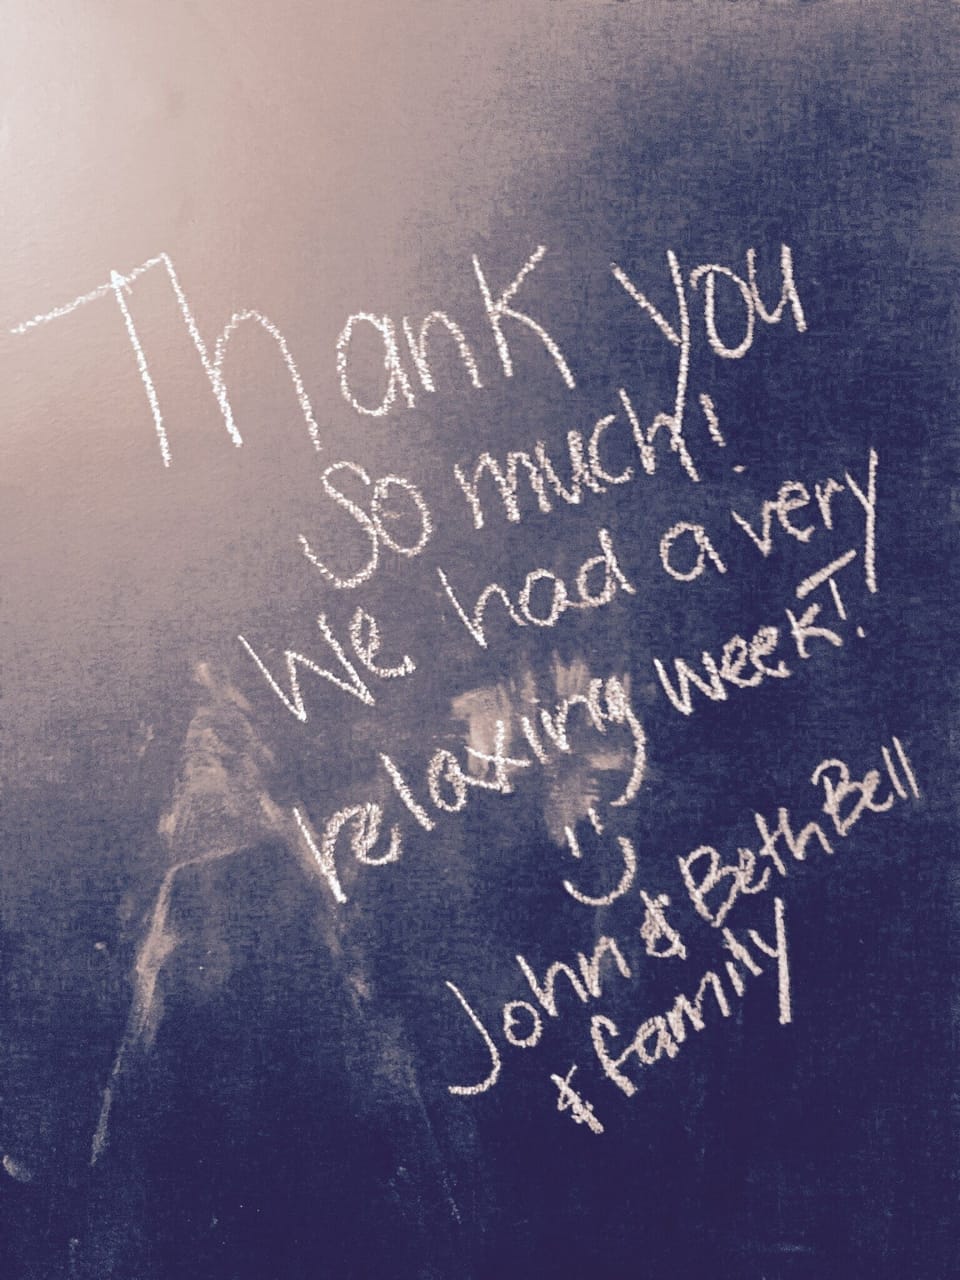 Thank you
so much!
We had a very
relaxing week!
John & Beth Bell
& family